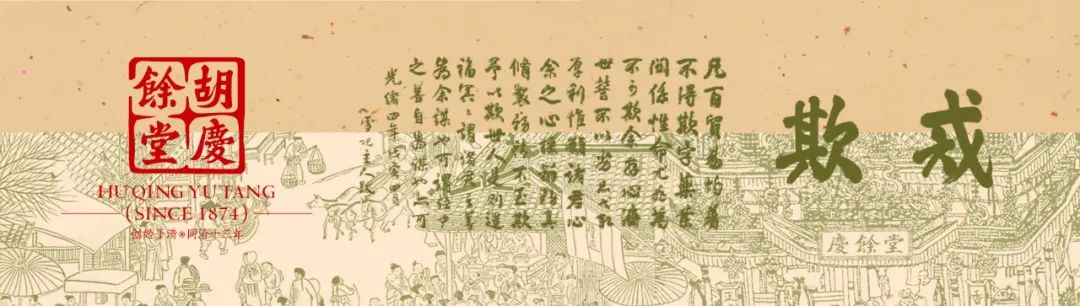 胡慶
餘堂
HU QING YU TANG
(SINCE 1874)
创始于清•同治十三年
戒欺
凡百貿易均着
不得欺字藥業
関係性命尤為萬
不可欺余存心濟
世誓不以劣品弋取
厚利惟願諸君心
余之心採辦務真
脩製務精不至欺
予以欺世人是則造
福冥冥謂諸君之善
為余謀也可謂諸君
之善自為謀也亦可
光緒四年戊寅四月
雪記主人跋
慶餘堂